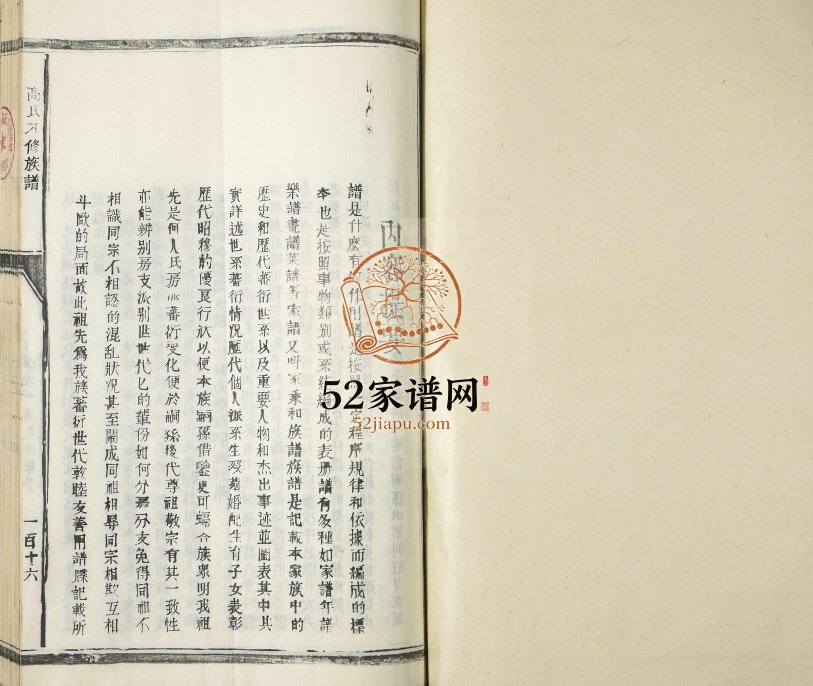 譜是什麽有作用譜是按照定程序規律和依據而編成的標
本也是按照事物類別或系統編成的表册譜有多種如家譜年譜
樂譜畫譜菜譜等家譜又叫家乘和族譜族譜是記載本家族中的
歷史和歷代蕃衍世系以及重要人物和杰出事迹並圖表其中其
實詳述世系蕃衍情况歷代個人派系生殁墓婚配生育子女表彰
歷代昭穆的優良行狀以便本族嗣孫借鑒更可蝠合族衆明我祖
先是何人氏房派蕃衍变化便於嗣孫後代尊祖敬宗有其一致性
亦能辨别房支派别世世代匕的輩份如何分房分支免得同祖不
相識同宗不相認的混乱狀况甚至鬧成同祖相辱同宗相欺互相
斗歐的局面故此祖先爲我族蕃衍世代敦睦友善用譜牒記載所
高氏六修族譜
一百十六
52家谱网
52jiapu.com